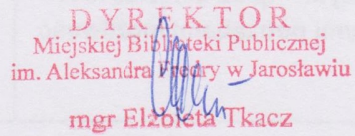 DYREKTOR
Miejskiej Biblioteki Publicznej
im. Aleksandra Fredry w Jarosławiu
mgr Elżbieta Tkacz